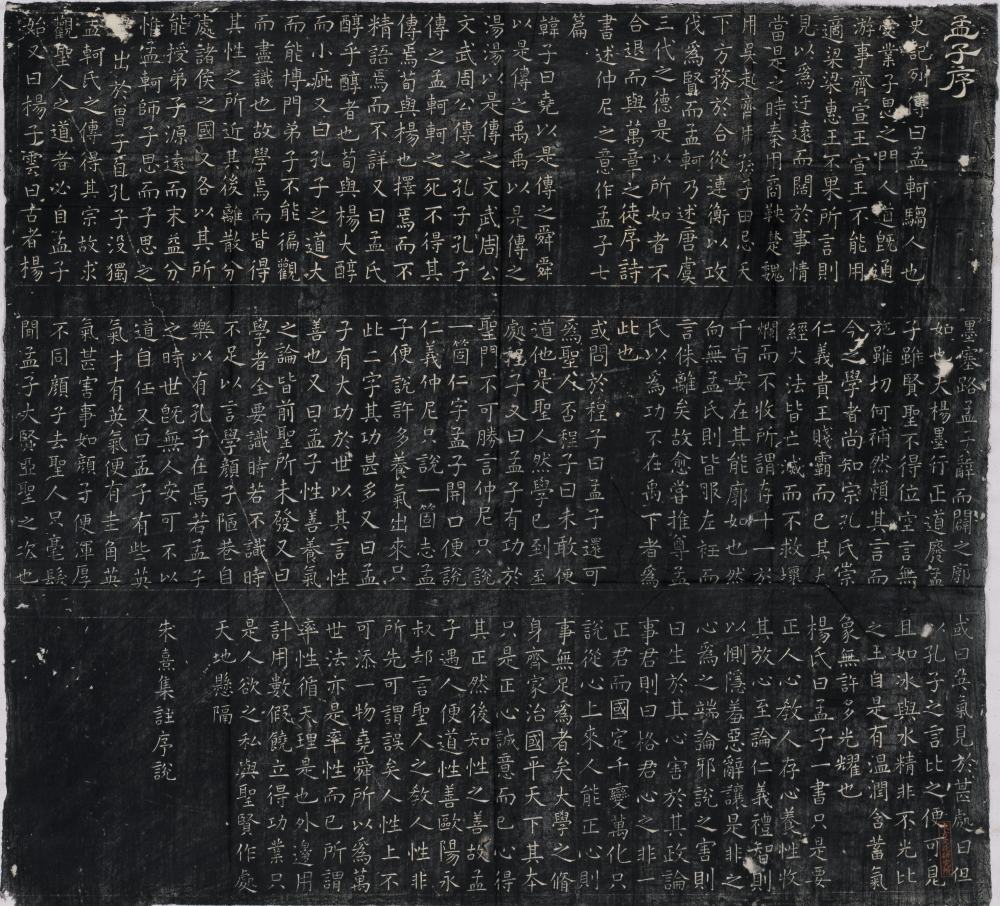 孟子序
史記列傳曰孟軻騶人也
受業子思之門人道旣通
游事齊宣王宣王不能用
適梁梁惠王不果所言則
見以爲迂遠而闊於事情
當是之時秦用商鞅楚魏
用吳起齊用孫子田忌天
下方務於合從連衡以攻
伐爲賢而孟軻乃述唐虞
三代之德是以所如者不
合退而與萬章之徒序詩
書述仲尼之意作孟子七
篇
韓子曰堯以是傳之舜舜
以是傳之禹禹以是傳之
湯湯以是傳之文武周公
文武周公傳之孔子孔子
傳之孟軻軻之死不得其
傳焉荀與楊也擇焉而不
精語焉而不詳又曰孟氏
醇乎醇者也荀與楊大醇
而小疵又曰孔子之道大
而能博門弟子不能徧觀
而盡識也故學焉而皆得
其性之所近其後離散分
處諸侯之國又各以其所
能授弟子源遠而末益分
惟孟軻師子思而子思之
出於曾子自孔子沒獨
孟軻氏之傳得其宗故求
觀聖人之道者必自孟子
始又曰楊子雲曰古者楊
墨塞路孟子辭而闢之廓
如也夫楊墨行正道廢孟
子雖賢聖不得位空言無
施雖切何補然賴其言而
今之學者尚知宗孔氏崇
仁義貴王賤霸而已其大
經大法皆亡滅而不救壞
爛而不收所謂存十一於
千百安在其能廓如也然
向無孟氏則皆服左衽而
言侏離矣故愈嘗推尊孟
氏以爲功不在禹下者爲
此也
或問於程子曰孟子還可
爲聖人否程子曰未敢便
道他是聖人然學已到至
處程子又曰孟子有功於
聖門不可勝言仲尼只說
一箇仁字孟子開口便說
仁義仲尼只說一箇志孟
子便說許多養氣出來只
此二字其功甚多又曰孟
子有大功於世以其言性
善也又曰孟子性善養氣
之論皆前聖所未發又曰
學者全要識時若不識時
不足以言學顏子陋巷自
樂以有孔子在焉若孟子
之時世旣無人安可不以
道自任又曰孟子有些英
氣才有英氣便有圭角英
氣甚害事如顏子便渾厚
不同顏子去聖人只毫髮
間孟子大賢亞聖之次也
或曰英氣見於甚處曰但
以孔子之言比之便可見
且如冰與水精非不光比
之玉自是有温潤含蓄氣
象無許多光耀也
楊氏曰孟子一書只是要
正人心教人存心養性收
其放心至論仁義禮智則
以惻隱羞惡辭讓是非之
心爲之端論邪說之害則
曰生於其心害於其政論
事君則曰格君心之非一
正君而國定千變萬化只
說從心上來人能正心則
事無足爲者矣大學之脩
身齊家治國平天下其本
只是正心誠意而已心得
其正然後知性之善故孟
子遇人便道性善歐陽永
叔却言聖人之教人性非
所先可謂誤矣人性上不
可添一物堯舜所以爲萬
世法亦是率性而已所謂
率性循天理是也外邊用
計用數假饒立得功業只
是人欲之私與聖賢作處
天地懸隔
朱熹集註序說